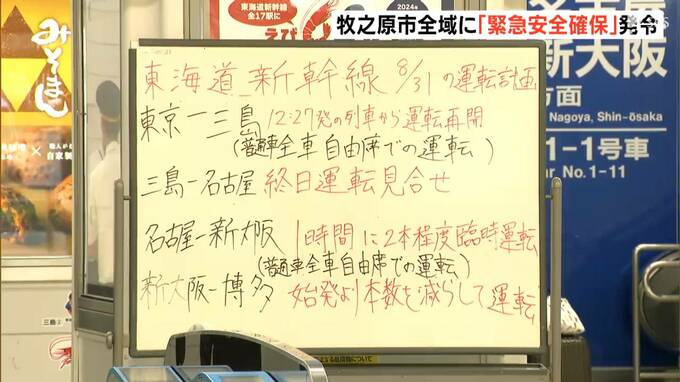 牧之原市全域に「緊急安全確保」発令
東海道新幹線
全17駅に
えび
2024年
みそまし
職人が
自家製
東海道新幹線 8/31の運転計画
東京ー三島 12:27発の列車から運転再開
(普通車全車自由席での運転)
三島ー名古屋 終日運転見合せ
名古屋ー新大阪 1時間に2本程度臨時運転
(普通車全車自由席での運転)
新大阪ー博多 始発より本数を減らして運転
名古屋
新大阪
方面
Nagoya, Shin-ōsaka
1-1号車
Car No. 1-11
三島